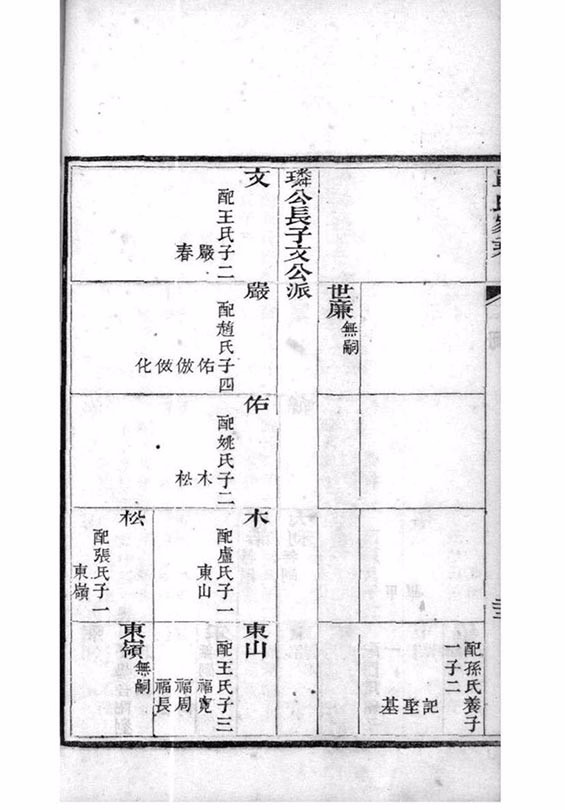 配孫氏養子
一子二
記
聖
基
世廉
無嗣
璘公長子文公派
文
配王氏子二
嚴
春
嚴
配趙氏子四
佑
倣
傚
化
佑
配姚氏子二
木
松
木
配盧氏子一
東山
松
配張氏子一
東嶺
東山
配王氏子三
福寬
福周
福長
東嶺
無嗣